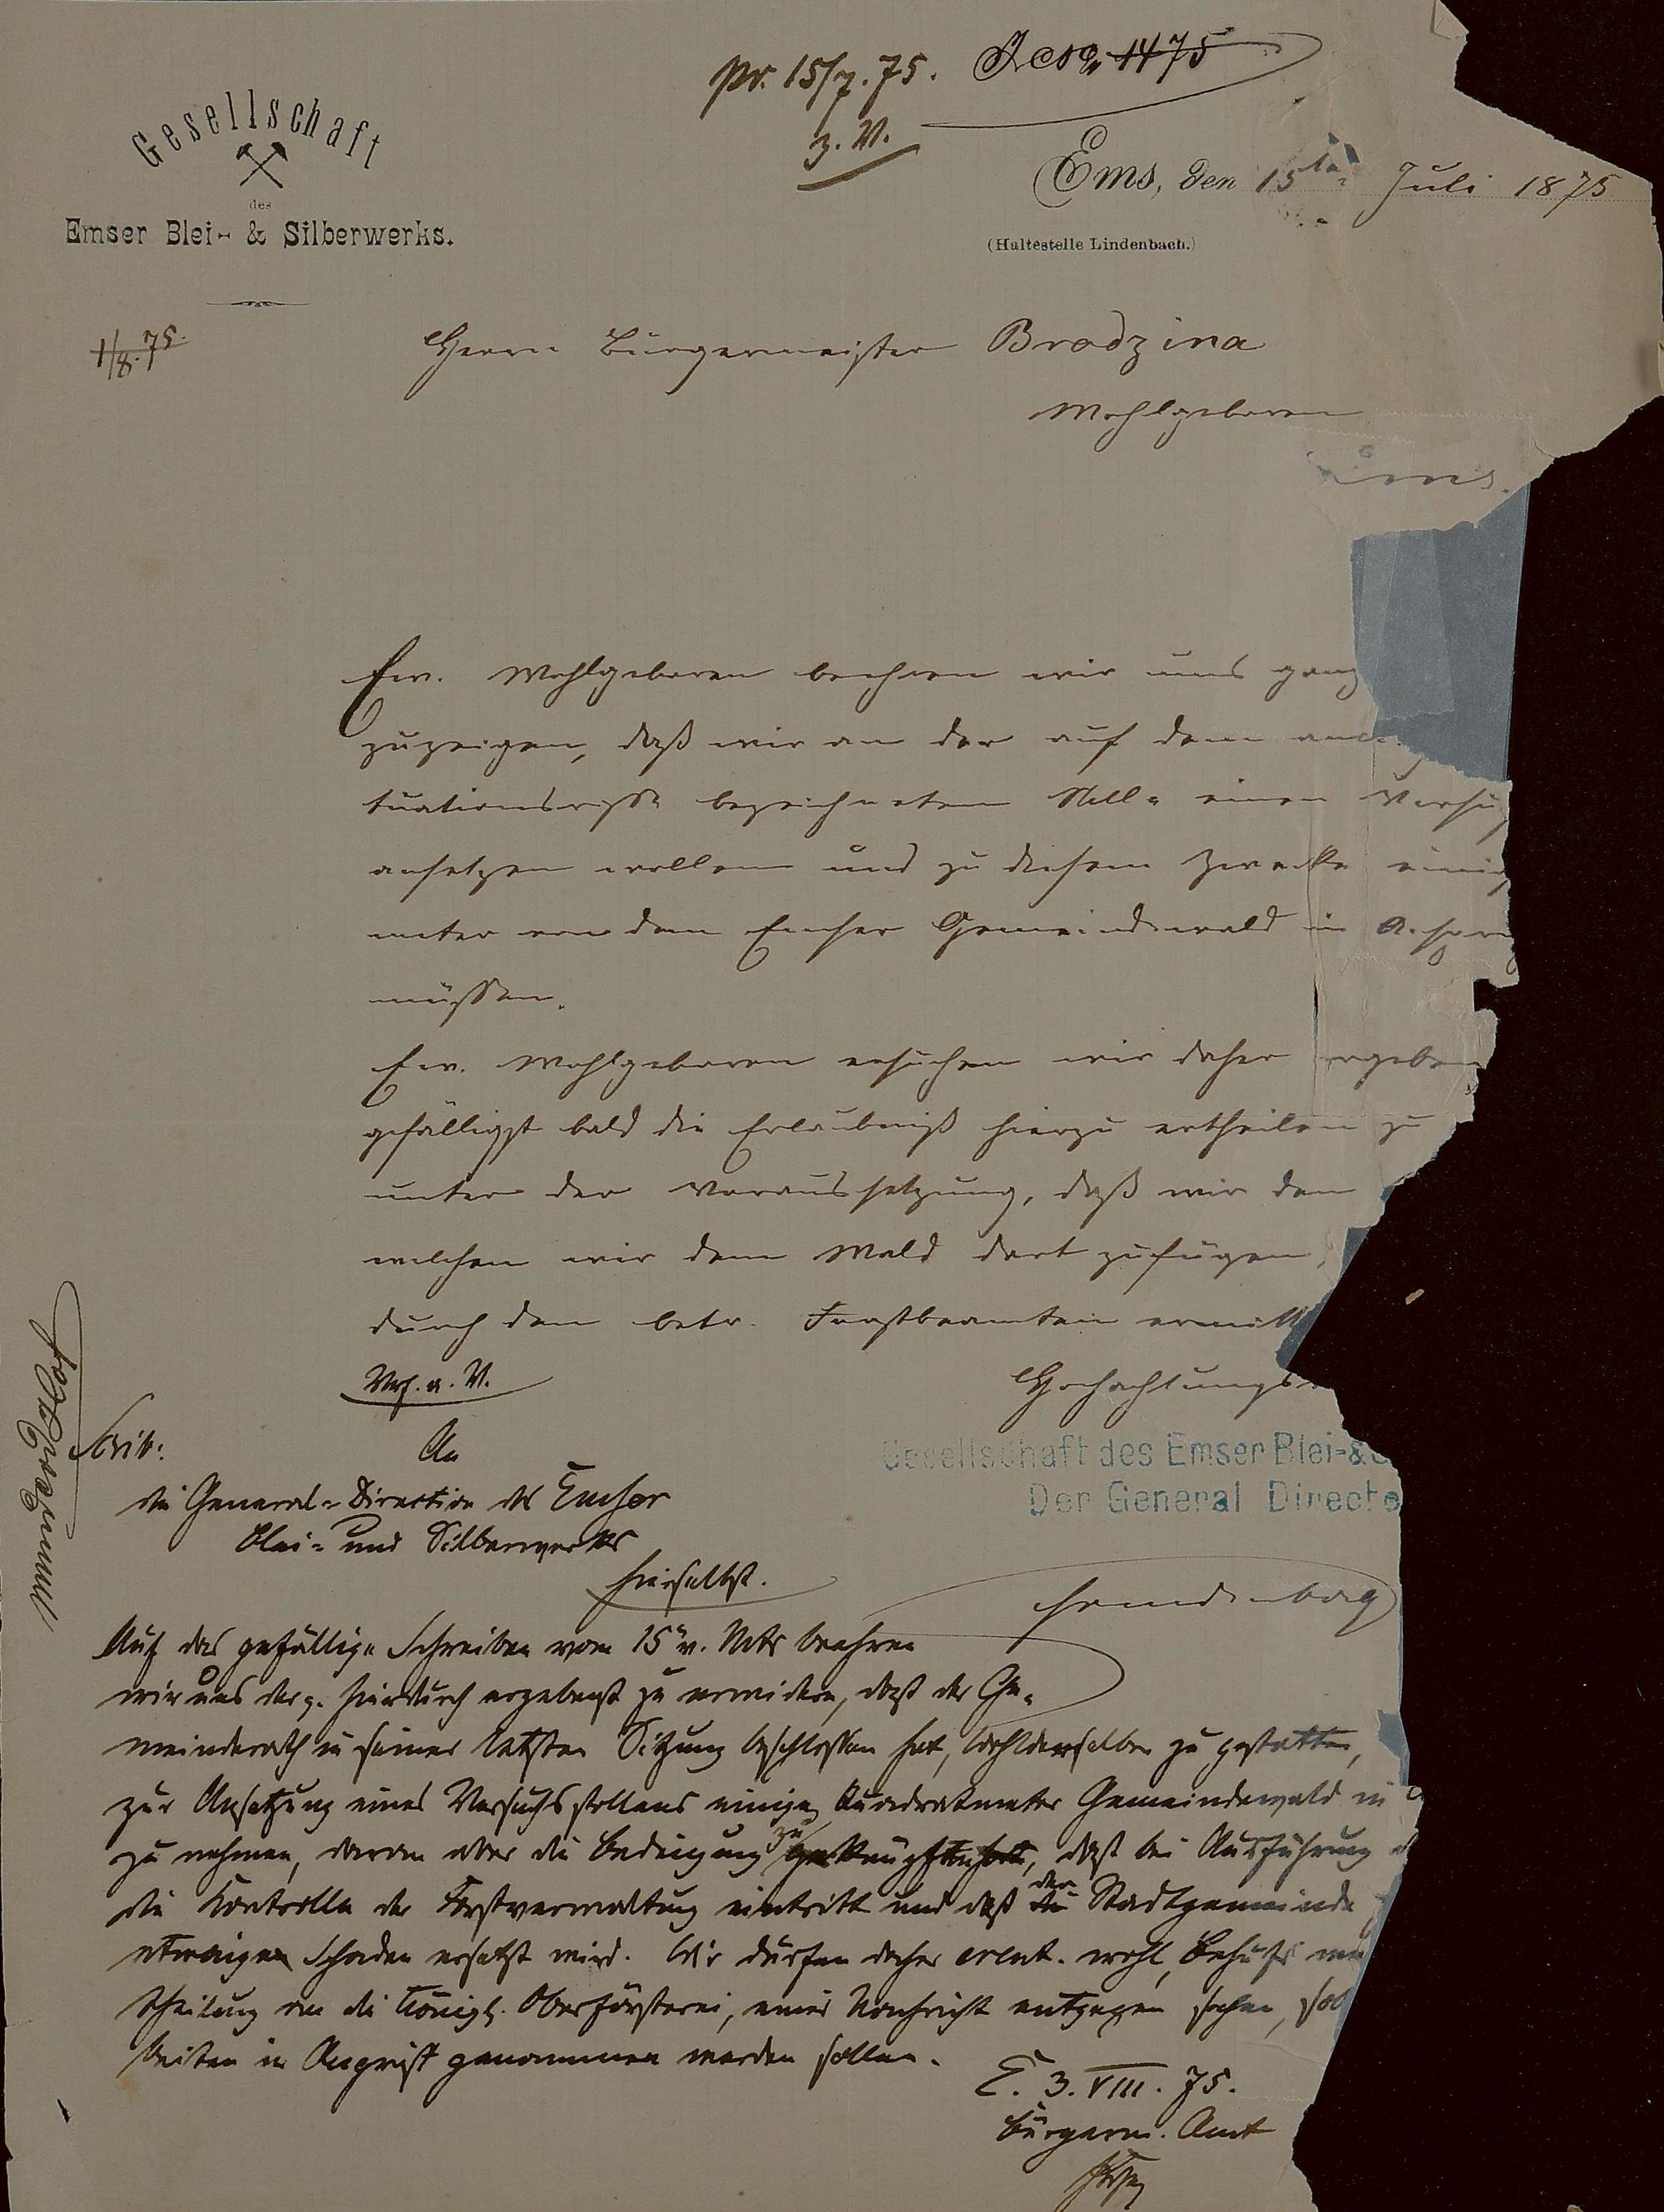 pr. 15/7. 75.
z. V.
Gesellschaft
des
Emser Blei- & Silberwerks.
Ems, den 15ten Juli 1875
(Haltestelle Lindenbach.)
1/8. 75.
Herrn Bürgermeister Brodzina
Wohlgeboren
Ems.
Ew. Wohlgeboren beehren wir uns ganz
zuzeigen, daß wir an der auf dem
tuationsrisse bezeichneten Stelle einen Versu
ansetzen wollen und zu diesem Zwecke eini
meter von dem Emser Gemeindewald in Anspru
müssen.
Ew. Wohlgeboren ersuchen wir daher ergeben
gefälligst bald die Erlaubniß hierzu ertheilen zu
unter der Voraussetzung, daß wir den
welchen wir dem Wald dort zufügen,
durch den betr. Forstbeamten ermitt
Hochachtungs
Gesellschaft des Emser Blei-&
Der General Directo
An
die General-Direction des Emser
Blei- und Silberwerks
hierselbst.
Auf das gefällige Schreiben vom 15 v. Mts beehren
wir uns ders. hierdurch ergebenst zu erwidern, daß der Ge-
meinderath in seiner letzten Sitzung beschlossen hat, wohlderselben zu gestatten,
zur Ansetzung eines Versuchsstollens einige Quadratmeter Gemeindewald in
zu nehmen, daran aber die Bedingung zu knüpfen, daß bei Ausführung
die Kontrolle der Forstverwaltung eintritt und daß der Stadtgemeinde
etwaiger Schaden ersetzt wird. Wir dürfen daher event. wohl, Behufs
theilung an die Königl. Oberförsterei, einer Nachricht entgegen sehen,
beiten in Angriff genommen werden sollen.
E. 3. VIII. 75.
Bürgerm. Amt